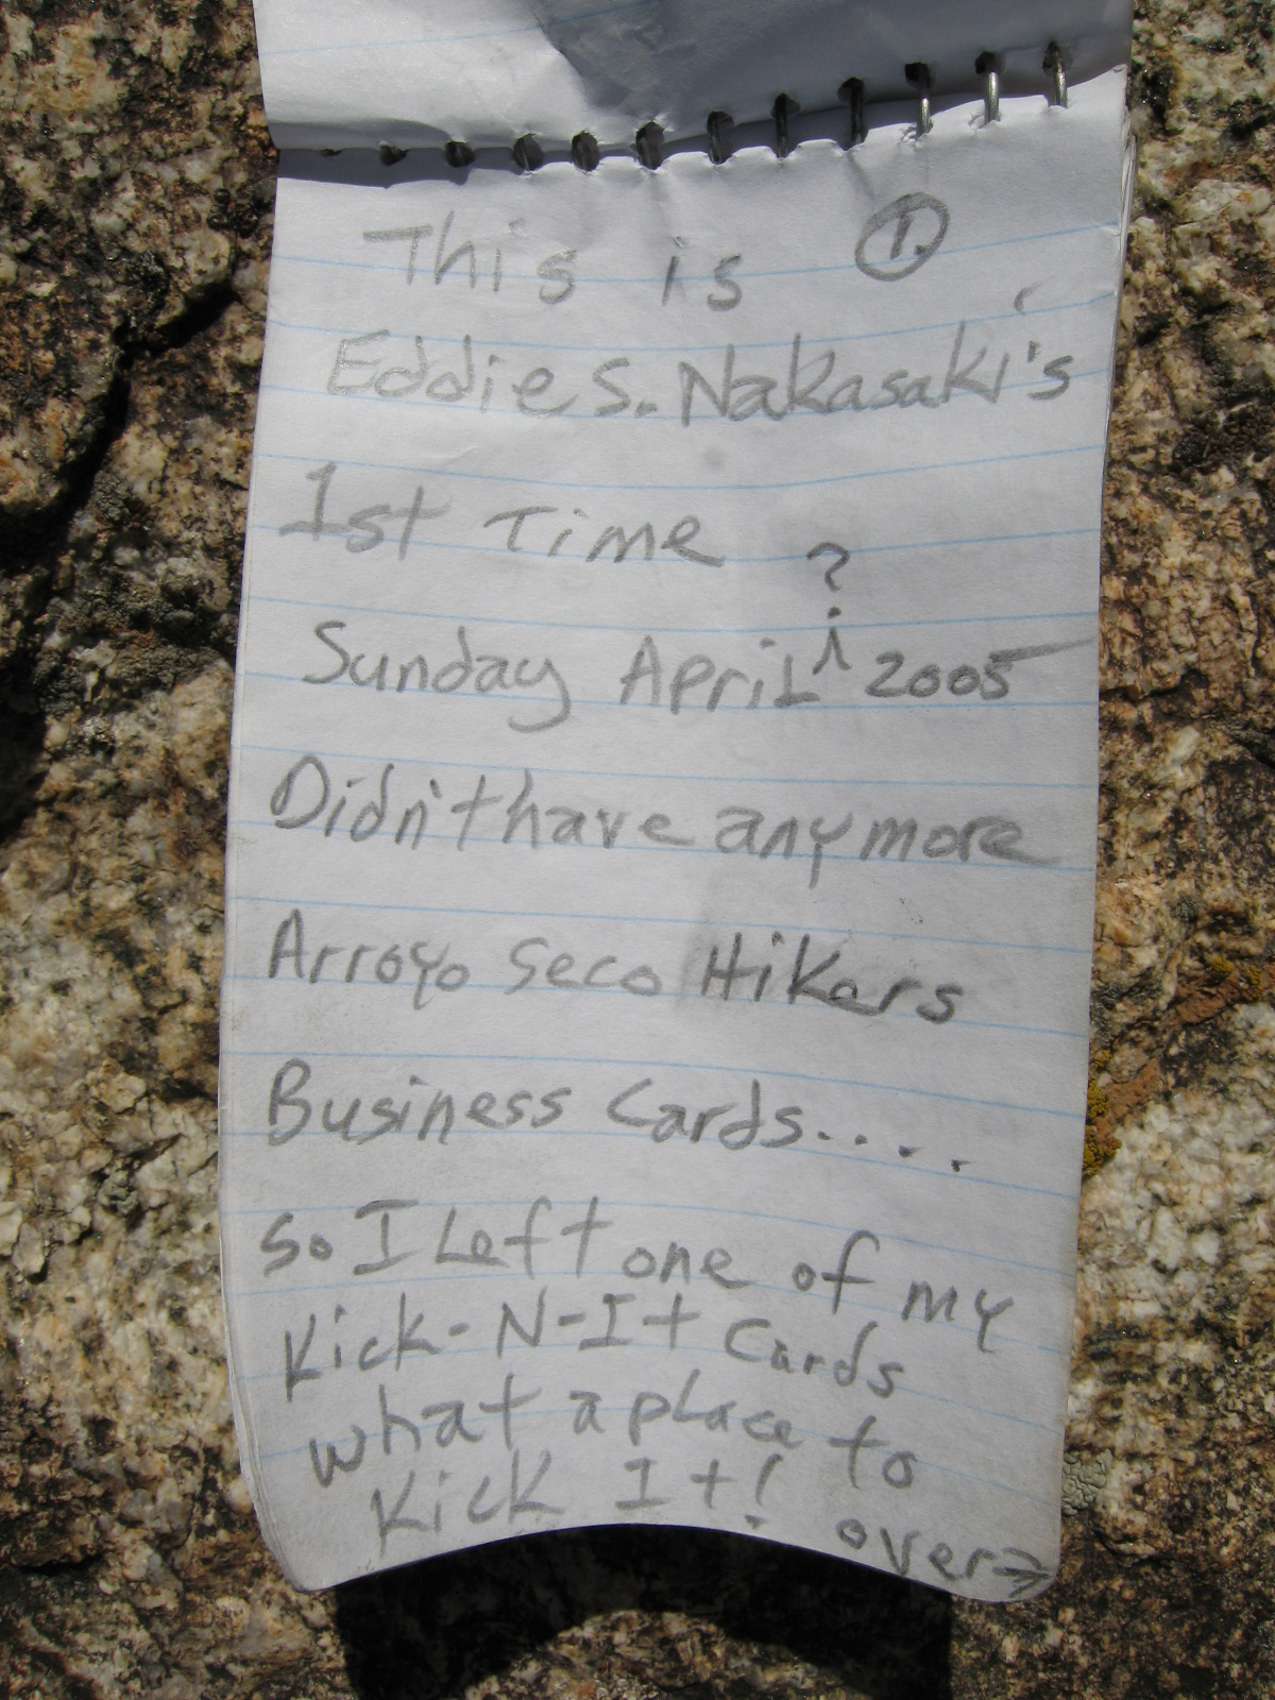 This is ①
Eddie S. Nakasaki's
1st Time
?
Sunday April 2005
Didn't have anymore
Arroyo Seco Hikers
Business Cards....
So I Left one of my
Kick-N-It Cards
what a place to
Kick It!
over→